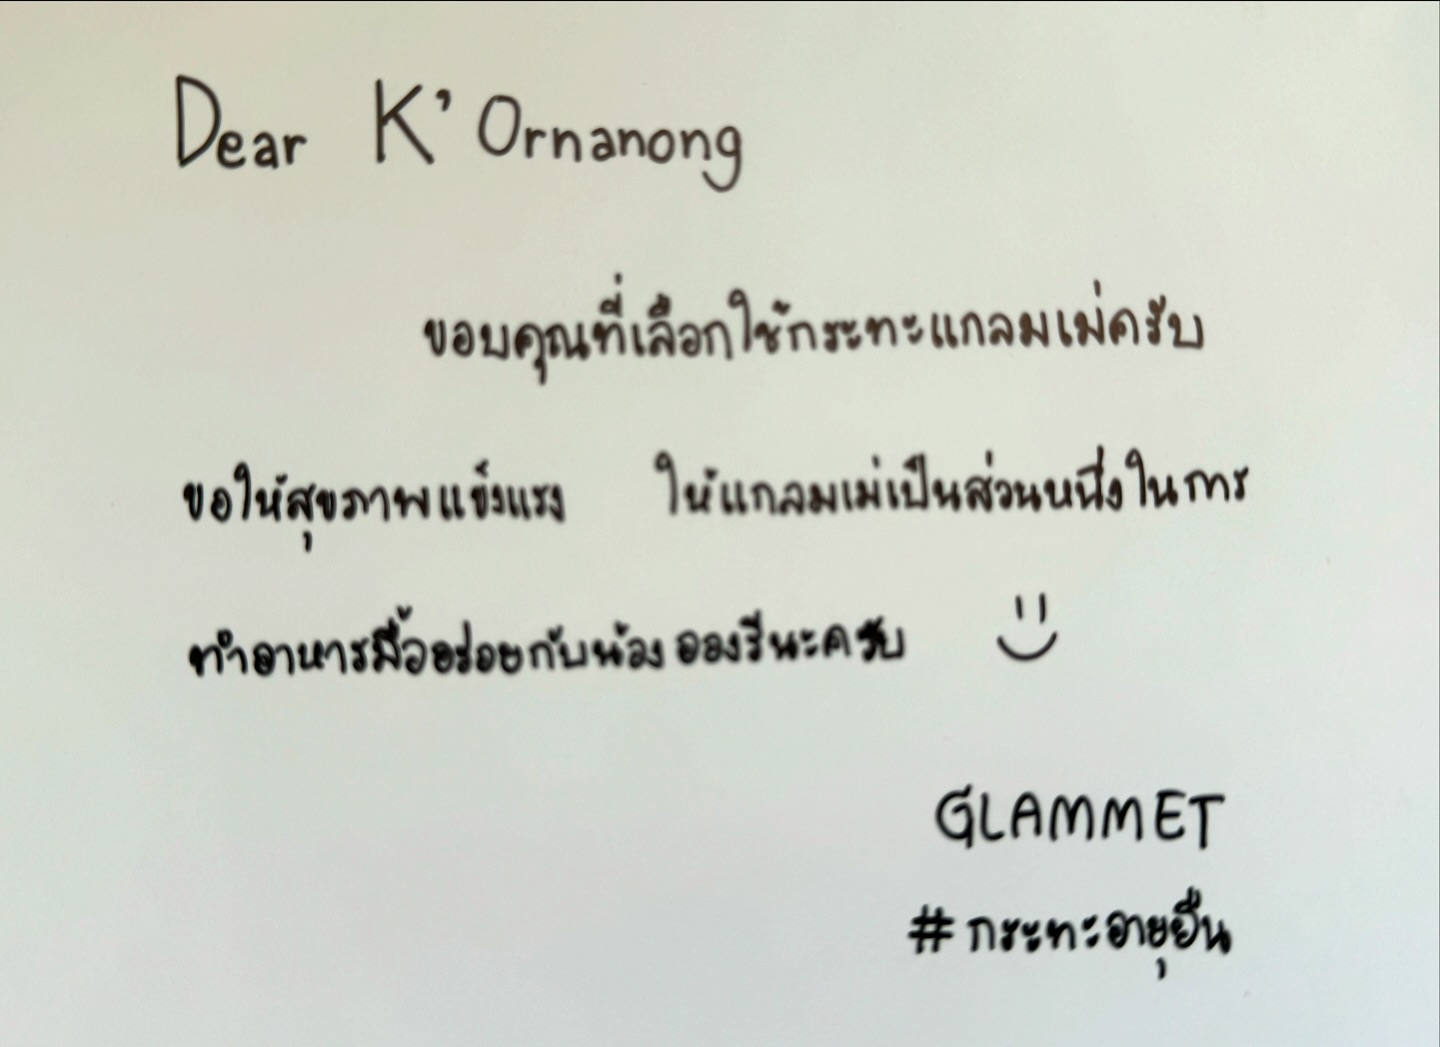 Dear K' Ornanong
ขอบคุณที่เลือกใช้กระทะแกลมเม่ครับ
ขอให้สุขภาพแข็งแรง ให้แกลมเม่เป็นส่วนหนึ่งในการ
ทำอาหารมื้ออร่อยกับน้อง อองรีนะครับ
GLAMMET
#กระทะอายุยืน